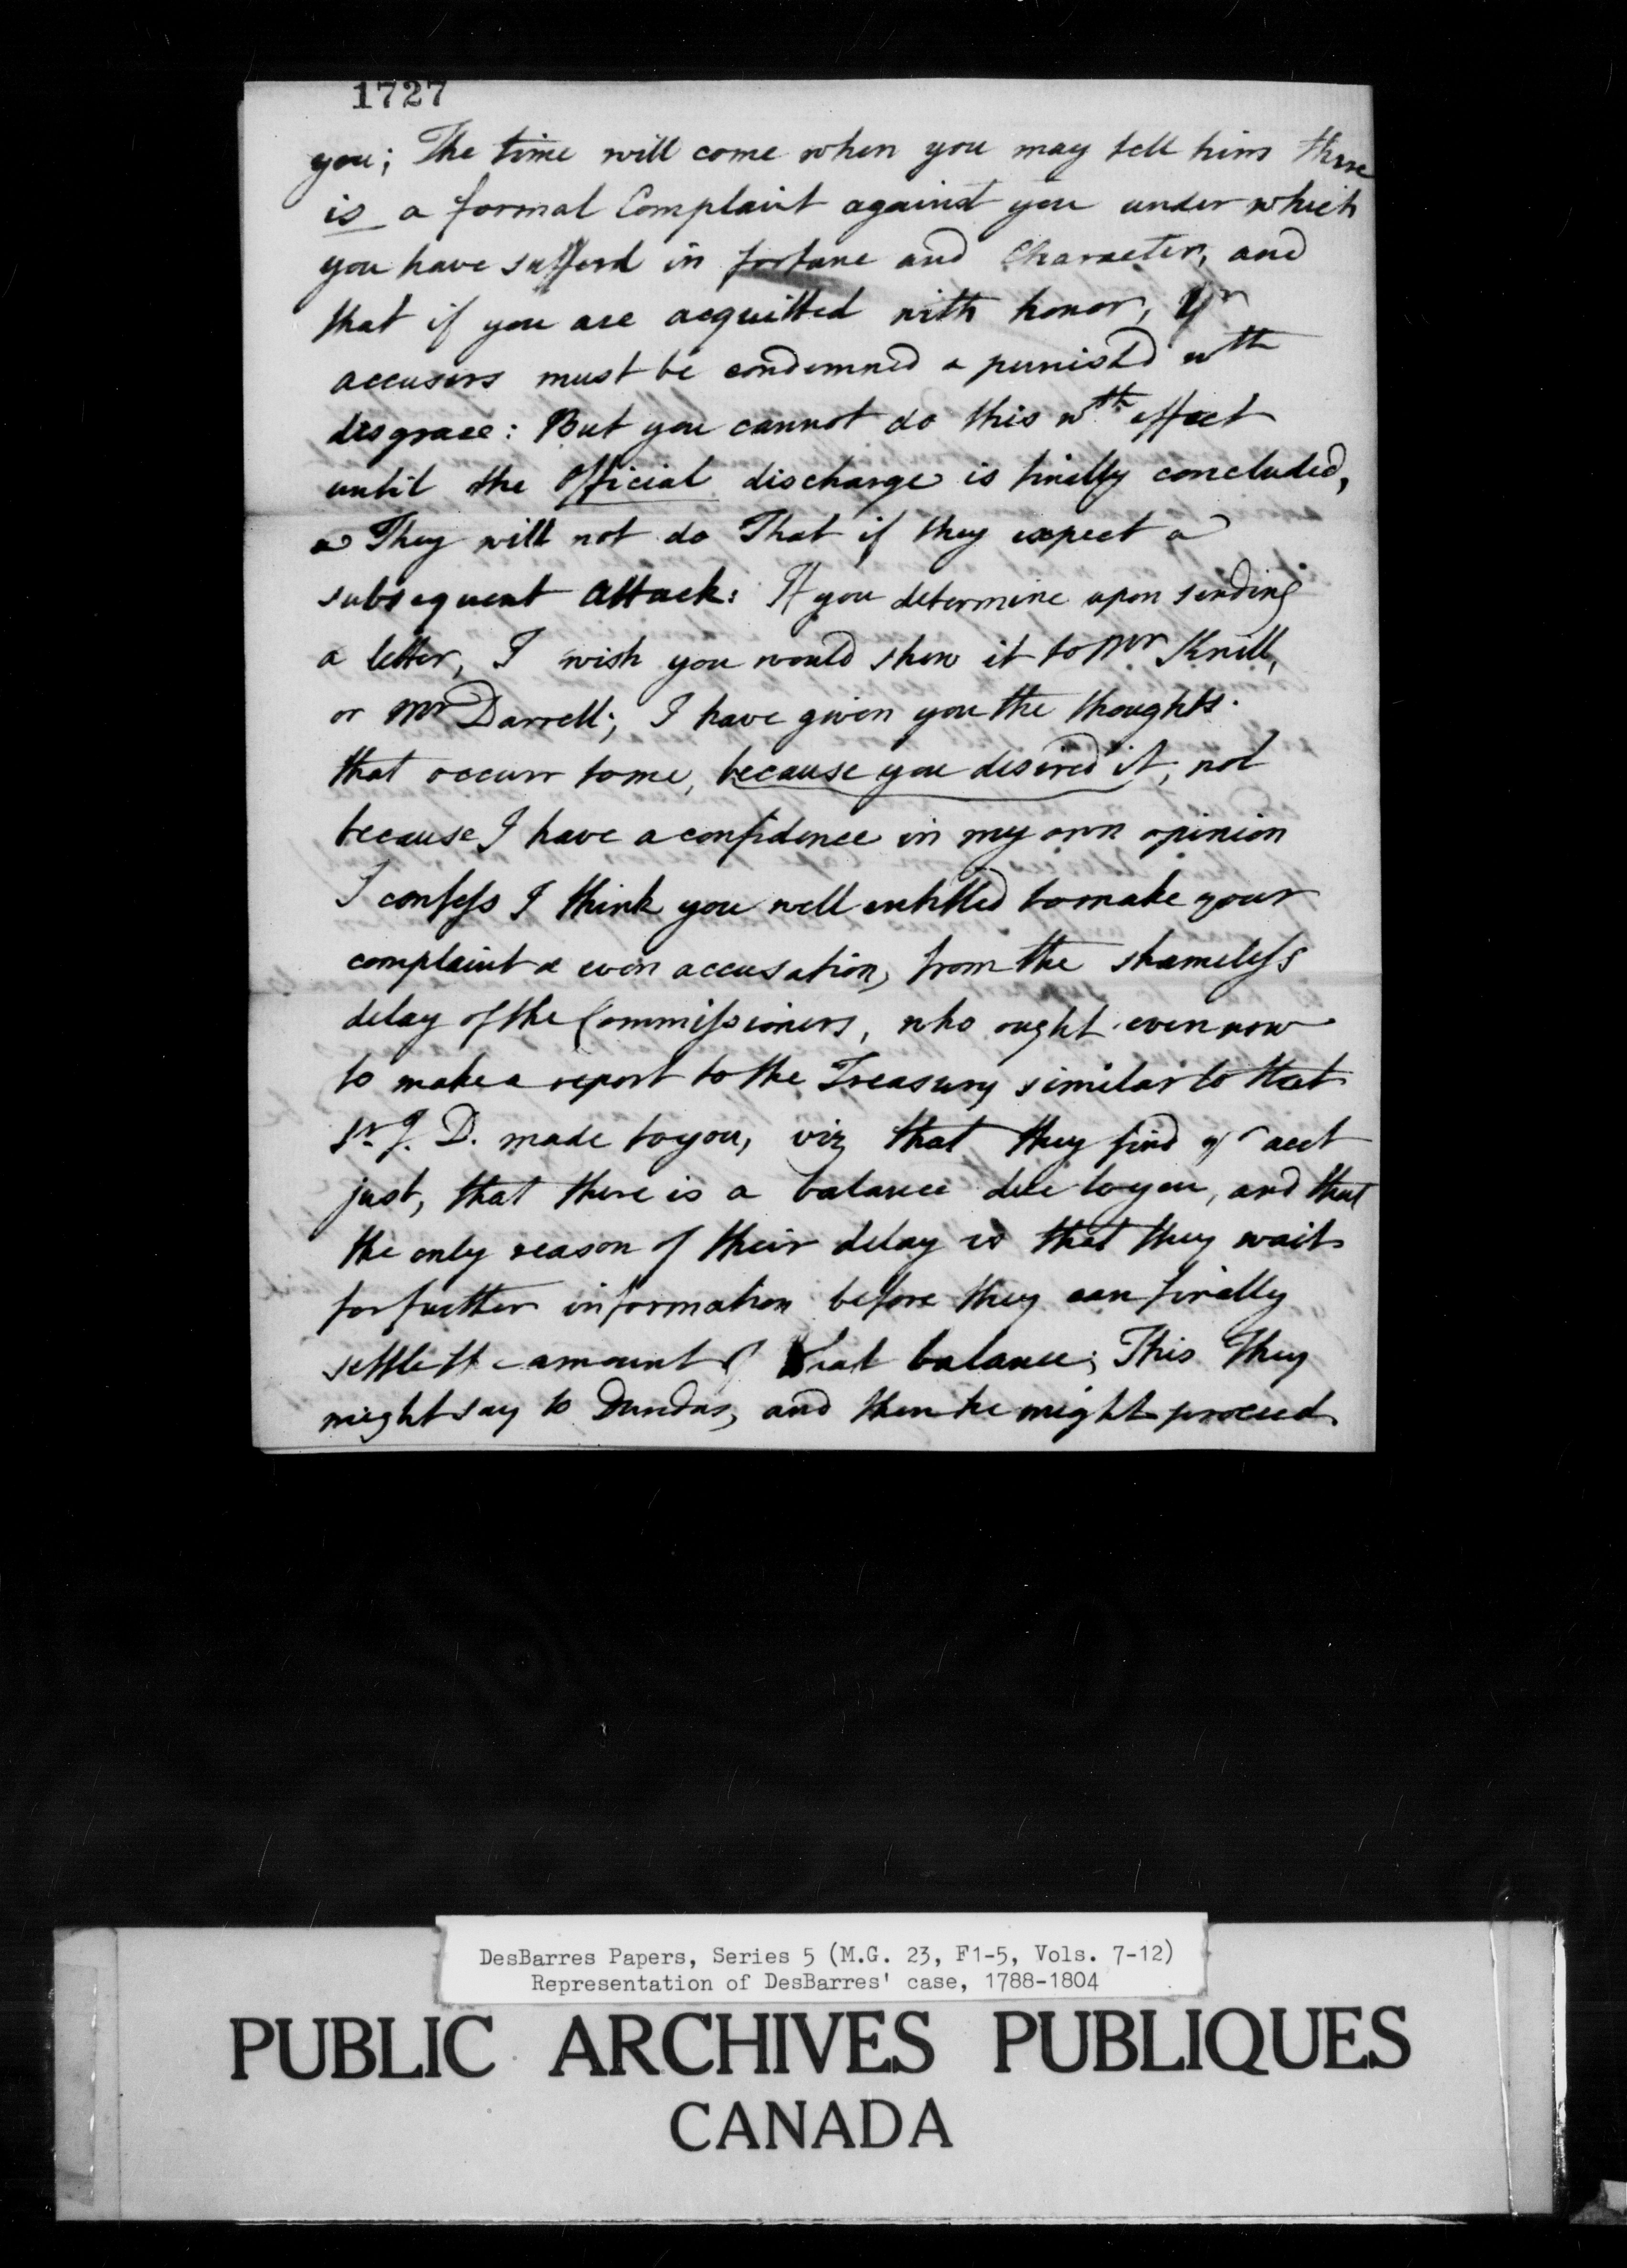 1727
you; The time will come when you may tell him there
is a formal Complaint against you under which
you have sufferd in fortune and Character, and
that if you are acquitted with honor, Yr
accusers must be condemned & punishd wth
disgrace: But you cannot do this wth effect
until the Official discharge is finally concluded,
& They will not do That if they expect a
subsequent Attack: If you determine upon sending
a letter, I wish you would shew it to Mr Knill,
or Mr Darrell; I have given you the thoughts
that occurr to me, because you desired it, not
because I have a confidence in my own opinion
I confess I think you well entitled to make your
complaint & even accusation, from the shameless
delay of the Commissioners, who ought even now
to make a report to the Treasury similar to that
Sr J. D. made to you, viz that they find yr acct
just, that there is a balance due to you, and that
the only reason of their delay is that they wait
for further information before they can finally
settle the amount of that balance; This They
might say to Dundas, and then he might proceed
DesBarres Papers, Series 5 (M.G. 23, F1-5, Vols. 7-12)
Representation of DesBarres' case, 1788-1804
PUBLIC ARCHIVES PUBLIQUES
CANADA